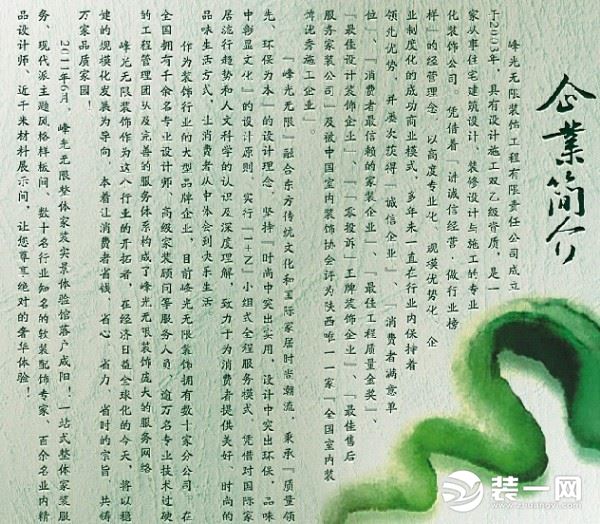 企業简介
峰光无限装饰工程有限责任公司成立
于2003年，具有设计施工双乙级资质，是一
家从事住宅建筑设计、装修设计与施工的专业
化装饰公司。凭借着「讲诚信经营·做行业榜
样」的经营理念，以高度专业化、规模优势化、企
业制度化的成功商业模式，多年来一直在行业内保持着
领先优势，并屡次获得「诚信企业」、「消费者满意单
位」、「消费者最信赖的家装企业」、「最佳工程质量金奖」、
「最佳设计装饰企业」、「零投诉」王牌装饰企业」、「最佳售后
服务家装公司」及被中国室内装饰协会评为陕西唯一一家「全国室内装
饰优秀施工企业」。
「峰光无限」融合东方传统文化和国际家居时尚潮流，秉承「质量领
先、环保为本」的设计理念，坚持「时尚中突出实用，设计中突出环保，品味
中彰显文化」的设计原则，实行「1+1」小组式全程服务模式，凭借对国际家
居流行趋势和人文科学的认识及深度理解，致力于为消费者提供美好、时尚的
品味生活方式，让消费者从中体会到快乐生活
作为装饰行业的大型品牌企业，目前峰光无限装饰拥有数十家分公司，在
全国拥有千余名专业设计师，高级家装顾问等服务人员，逾万名专业技术过硬
的工程管理团队及完善的服务体系构成了峰光无限装饰庞大的服务网络
峰光无限装饰作为这八行业的开拓者，在经济日益全球化的今天，将以稳
健的规模化发展为导向，本着让消费者省钱、省心、省力、省时的宗旨，共铸
万家品质家园！
2011年6月，峰光无限整体家装实景体验馆落户咸阳！一站式整体家装服
务、现代派主题风格样板间、数十名行业知名的软装配饰专家、百余名业内精
品设计师、近千米材料展示间，让您尊享绝对的奢华体验！
装一网
www.zhuangyi.com